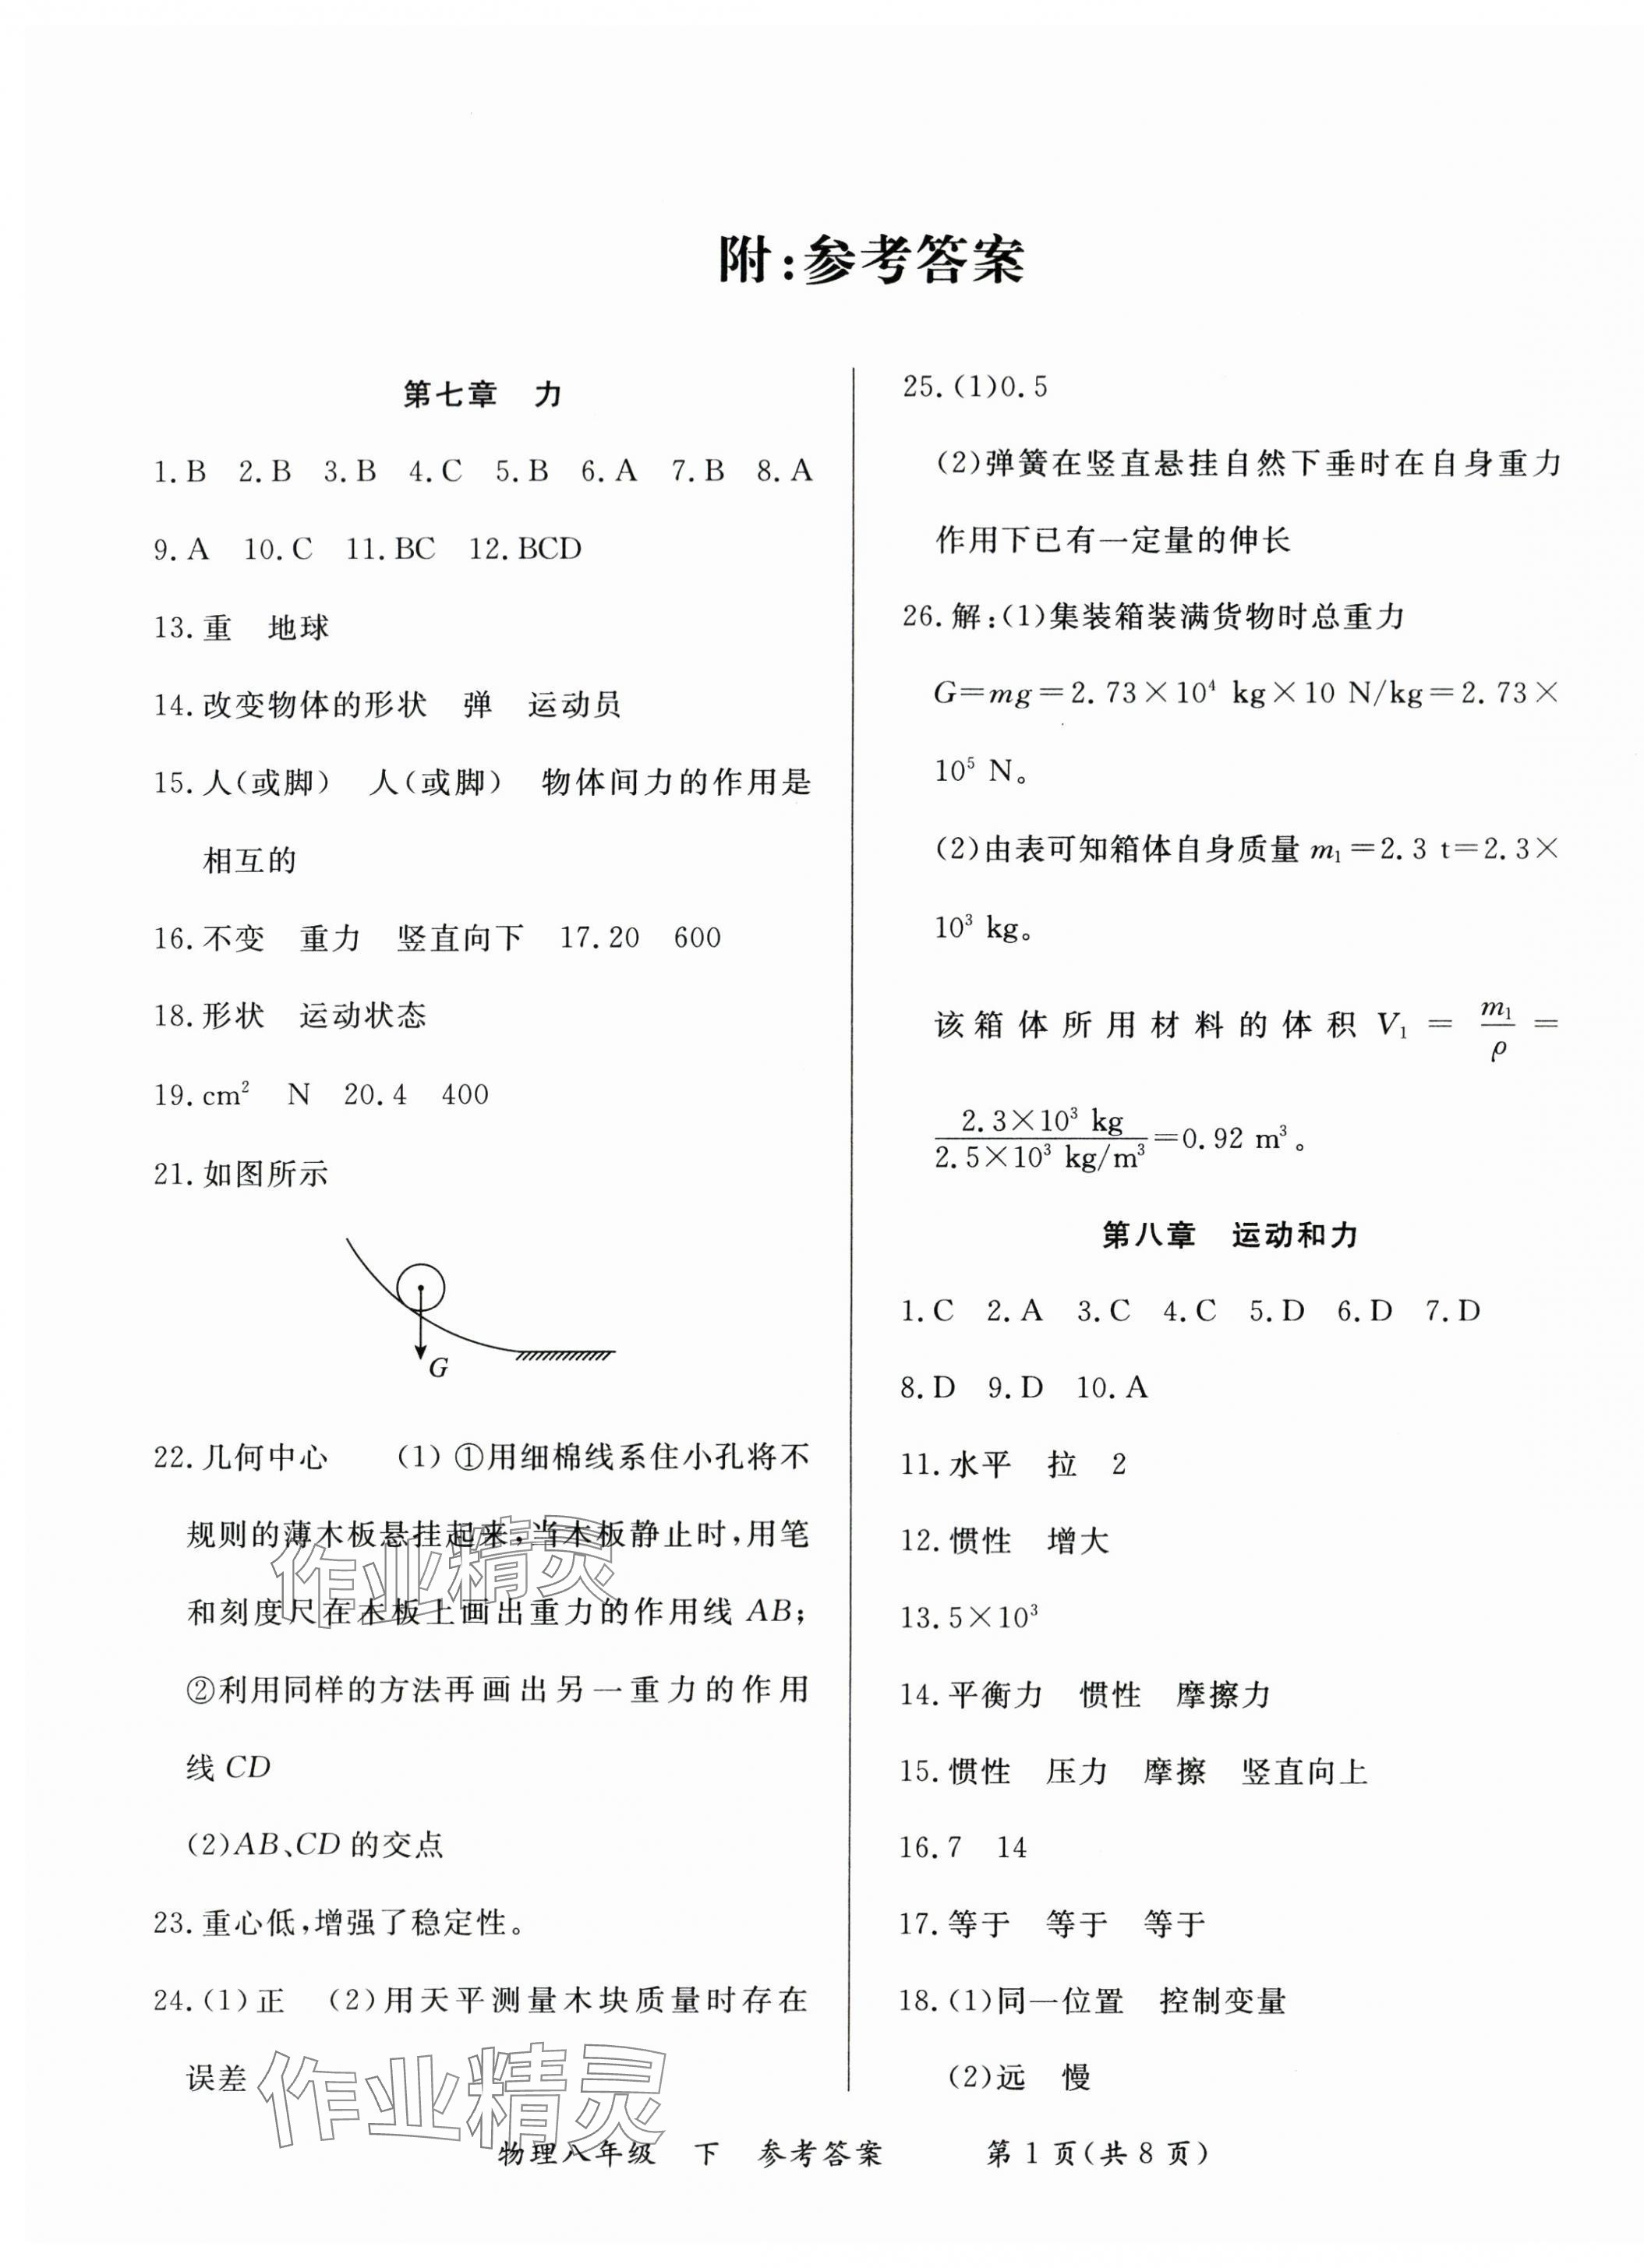 附:参考答案
第七章 力
1.B 2.B 3.B 4.C 5.B 6.A 7.B 8.A
9.A 10.C 11.BC 12.BCD
13.重 地球
14.改变物体的形状 弹 运动员
15.人(或脚) 人(或脚) 物体间力的作用是
相互的
16.不变 重力 竖直向下 17.20 600
18.形状 运动状态
19.cm² N 20.4 400
21.如图所示
G
22.几何中心 (1)①用细棉线系住小孔将不
规则的薄木板悬挂起来,当木板静止时,用笔
和刻度尺在木板上画出重力的作用线 AB;
②利用同样的方法再画出另一重力的作用
线 CD
(2)AB、CD 的交点
23.重心低,增强了稳定性。
24.(1)正 (2)用天平测量木块质量时存在
误差
25.(1)0.5
(2)弹簧在竖直悬挂自然下垂时在自身重力
作用下已有一定量的伸长
26.解:(1)集装箱装满货物时总重力
G=mg=2.73×10⁴ kg×10 N/kg=2.73×
10⁵ N。
(2)由表可知箱体自身质量 m₁=2.3 t=2.3×
10³ kg。
该箱体所用材料的体积 V₁ = m₁/ρ =
2.3×10³ kg/2.5×10³ kg/m³=0.92 m³。
第八章 运动和力
1.C 2.A 3.C 4.C 5.D 6.D 7.D
8.D 9.D 10.A
11.水平 拉 2
12.惯性 增大
13.5×10³
14.平衡力 惯性 摩擦力
15.惯性 压力 摩擦 竖直向上
16.7 14
17.等于 等于 等于
18.(1)同一位置 控制变量
(2)远 慢
作业精灵
作业精灵
物理八年级 下 参考答案 第 1 页(共 8 页)